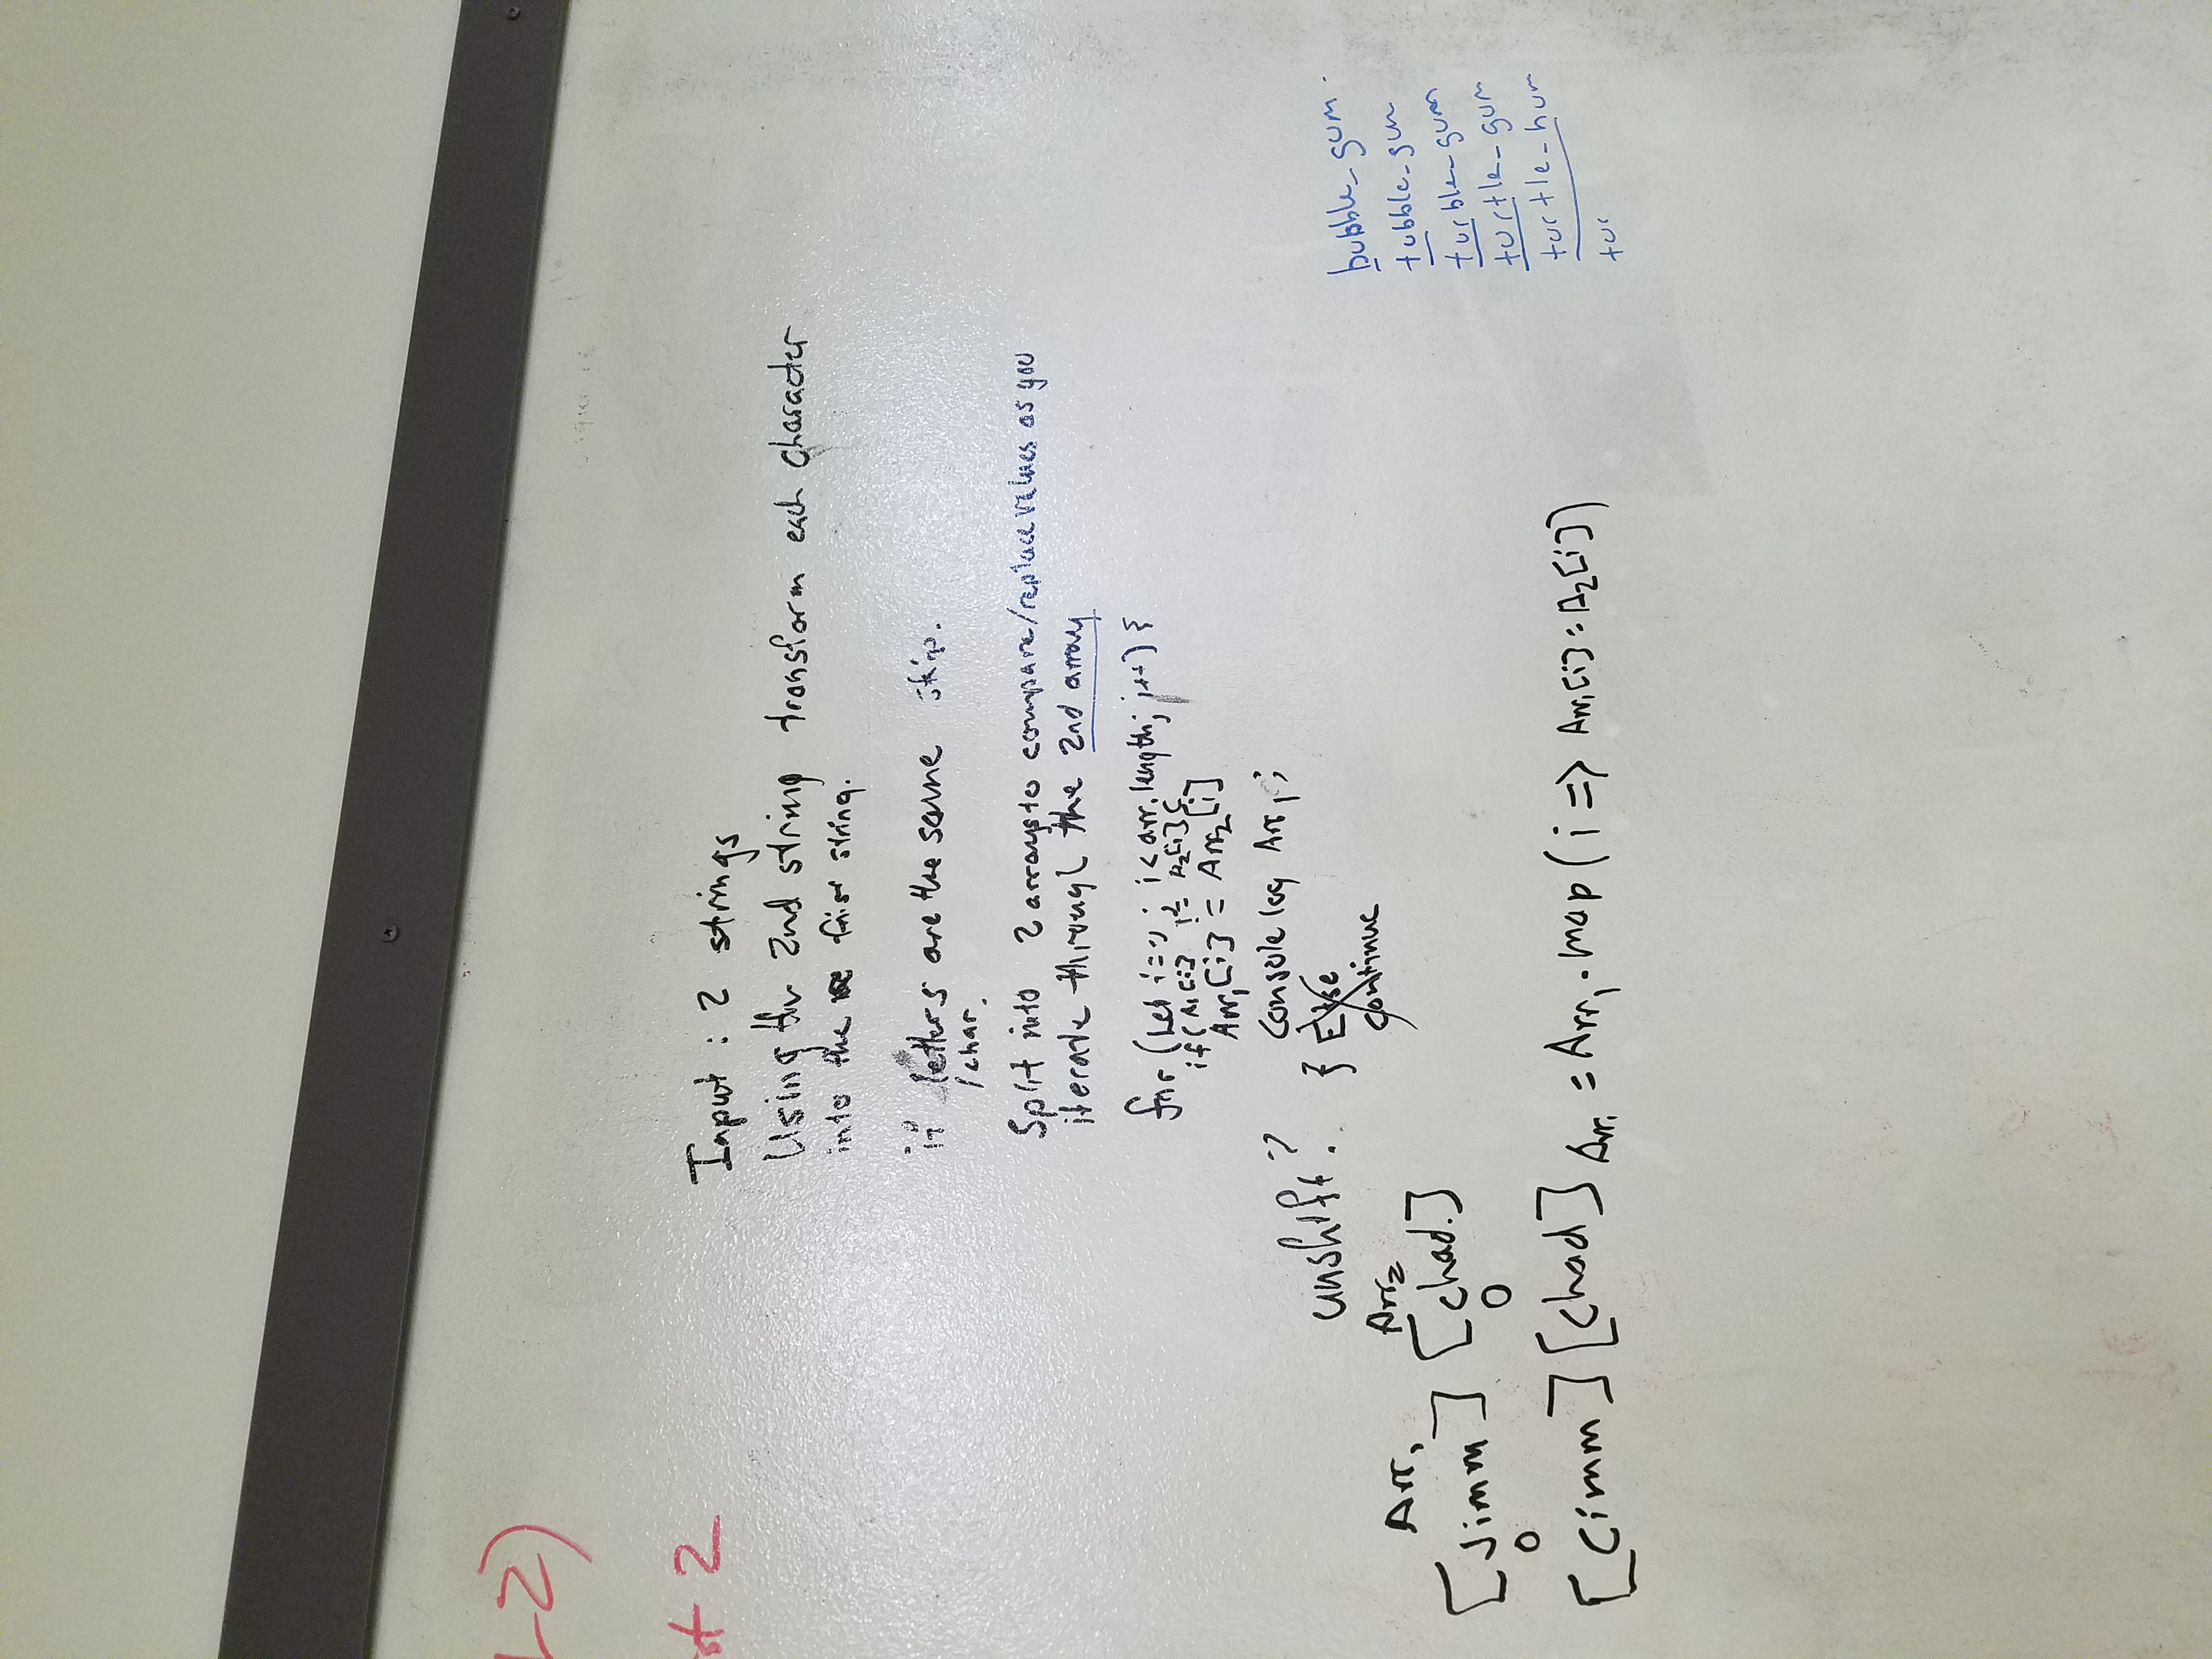 L2)
st 2
Input : 2 strings
Using the 2nd string transform each character
into the first string.
if letters are the same skip.
/char.
Split into 2 arrays to compare/replace values as you
iterate through the 2nd array
for (Let i= ; i < arr.length; i++) {
if (A1[i] != A2[i]{
Arr1[i] = Arr2[i]
console log Arr1;
unshift?
} Else
continue
Arr1 Arr2
[Jimm] [chad.]
0 0
[cimm] [chad] Arr1 = Arr1.map(i => Arr1[i] = A2[i])
bubble_gum
tubble_gum
turble_gum
turtle_gum
turtle_hum
tur